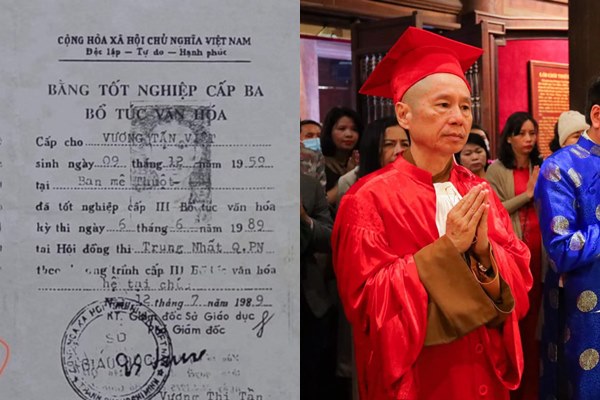 CỘNG HÒA XÃ HỘI CHỦ NGHĨA VIỆT NAM
Độc lập - Tự do - Hạnh phúc
BẰNG TỐT NGHIỆP CẤP BA
BỔ TÚC VĂN HÓA
Cấp cho VƯƠNG TẤN VIỆT
sinh ngày 09 tháng 12 năm 1959
tại Ban mê Thuột
đã tốt nghiệp cấp III Bổ túc văn hóa
kỳ thi ngày 6 tháng 6 năm 1989
tại Hội đồng thi Trung Nhất Q.PN
theo trình cấp III văn hóa
hệ tại
12 tháng 7 năm 1989
KT. Giám đốc Sở Giáo dục
Giám đốc
SỞ
GIÁO DỤC
Vương Thị